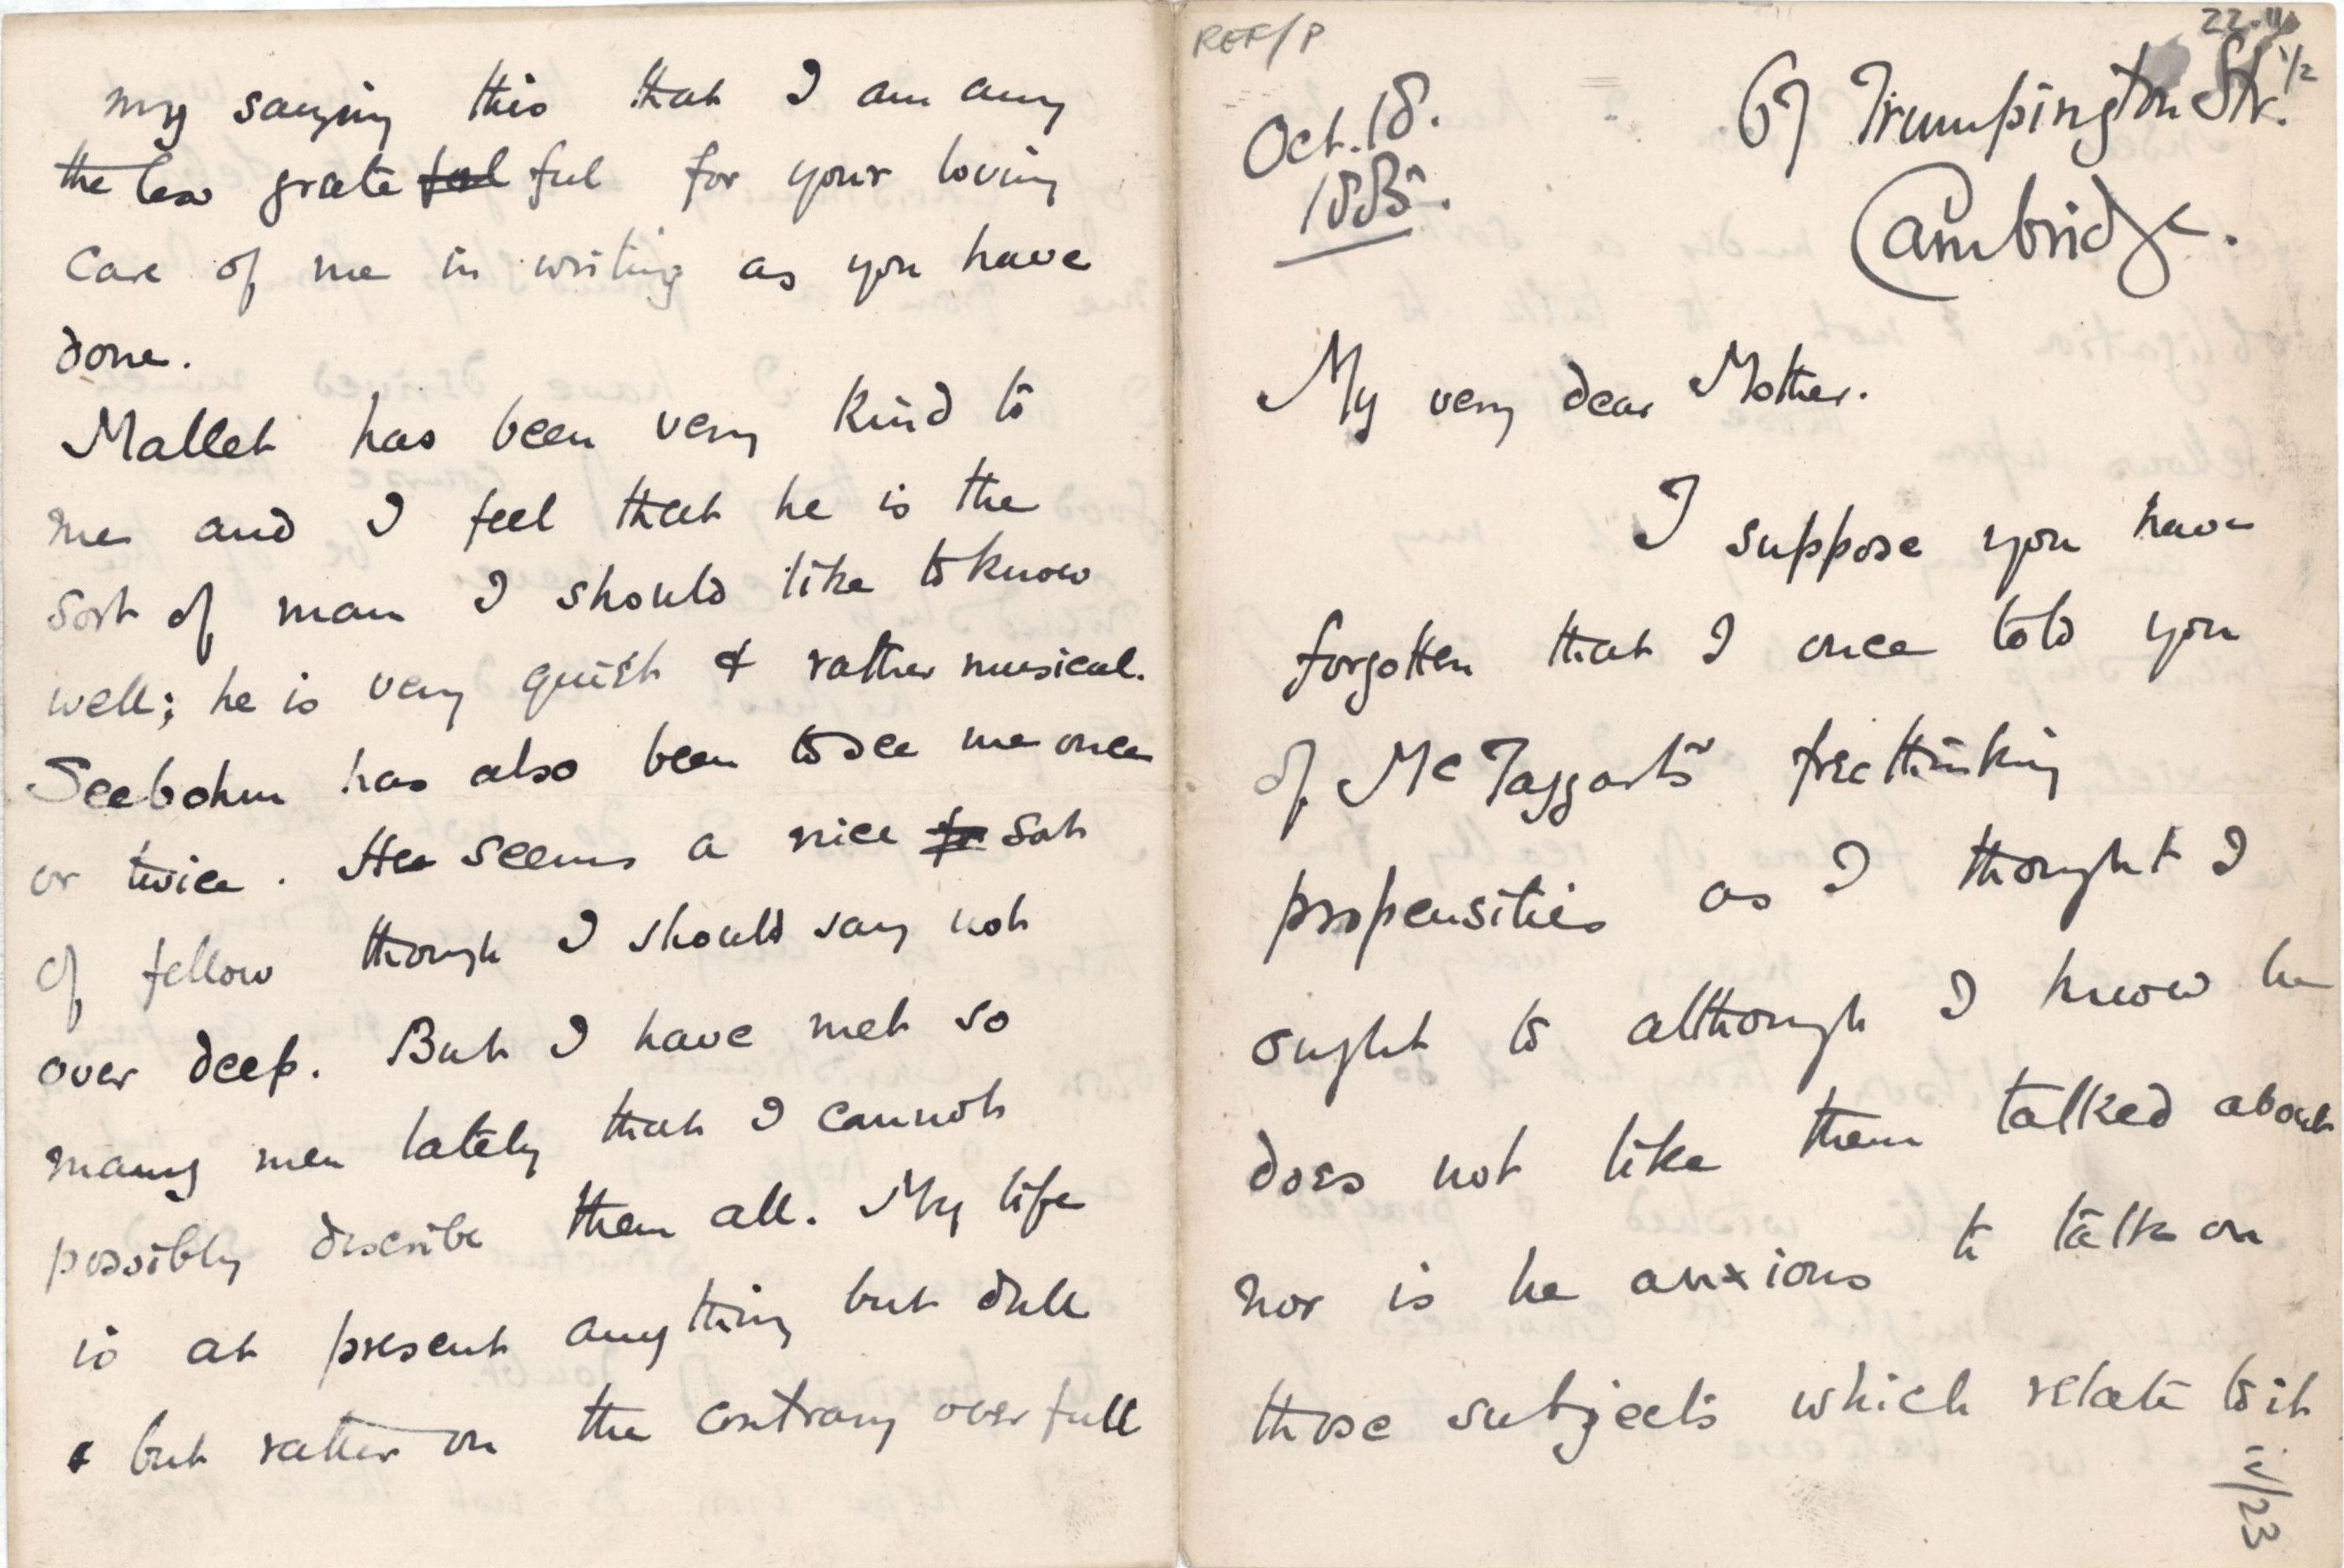 my saying this that I am any
the less grate ful for your loving
care of me in writing as you have
done.
Mallet has been very kind to
me and I feel that he is the
sort of man I should like to know
well; he is very quiet & rather musical.
Seebohm has also been to see me once
or twice. He seems a nice sort
of fellow though I should say not
over deep. But I have met so
many men lately that I cannot
possibly describe them all. My life
is at present anything but dull
but rather on the contrary over full
REF/P
Oct. 18.
1885.
67 Trumpington Str.
Cambridge.
My very dear Mother.
I suppose you have
forgotten that I once told you
of McTaggart's freethinking
propensities as I thought I
ought to although I know he
does not like them talked about
nor is he anxious to talk on
those subjects which relate to it